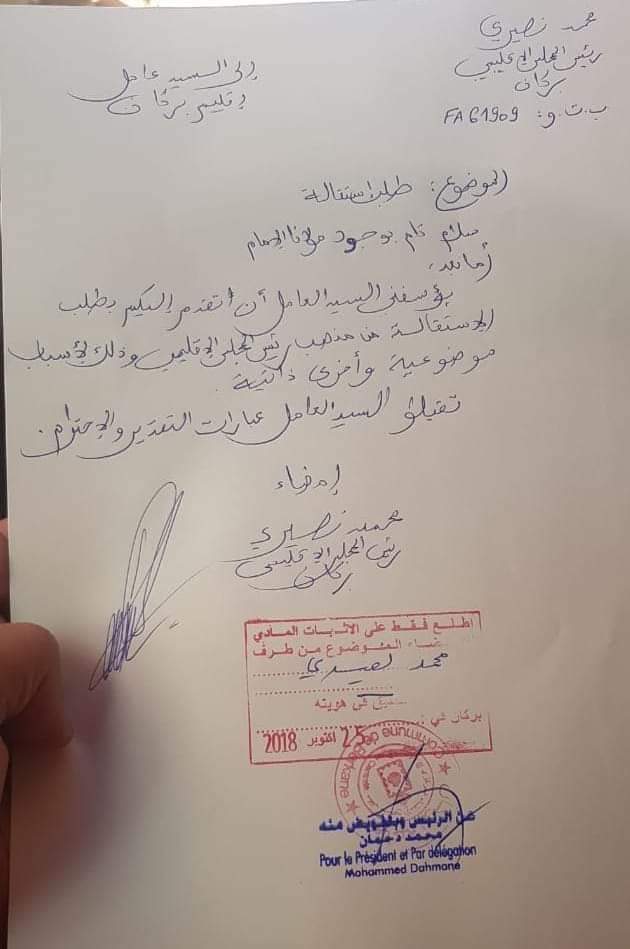 محمد نصيري
رئيس المجلس الإقليمي
بركان
ب.ت.و: FA61909
إلى السيد عامل
إقليم بركان
الموضوع: طلب استقالة
سلام تام بوجود مولانا الإمام
أما بعد،
يؤسفني السيد العامل أن أتقدم إليكم بطلب
الاستقالة من منصب رئيس المجلس الإقليمي وذلك لأسباب
موضوعية وأخرى ذاتية.
تقبلوا السيد العامل عبارات التقدير والاحترام.
إمضاء
محمد نصيري
رئيس المجلس الإقليمي
بركان
اطلع فقط على الاثبات المادي
الموضوع من طرف
محمد نصيري
في هويته
بركان في: 25 أكتوبر 2018
Commune de Berkane
عن الرئيس وبتفويض منه
محمد دحمان
Pour le Président et Par délégation
Mohammed Dahmane